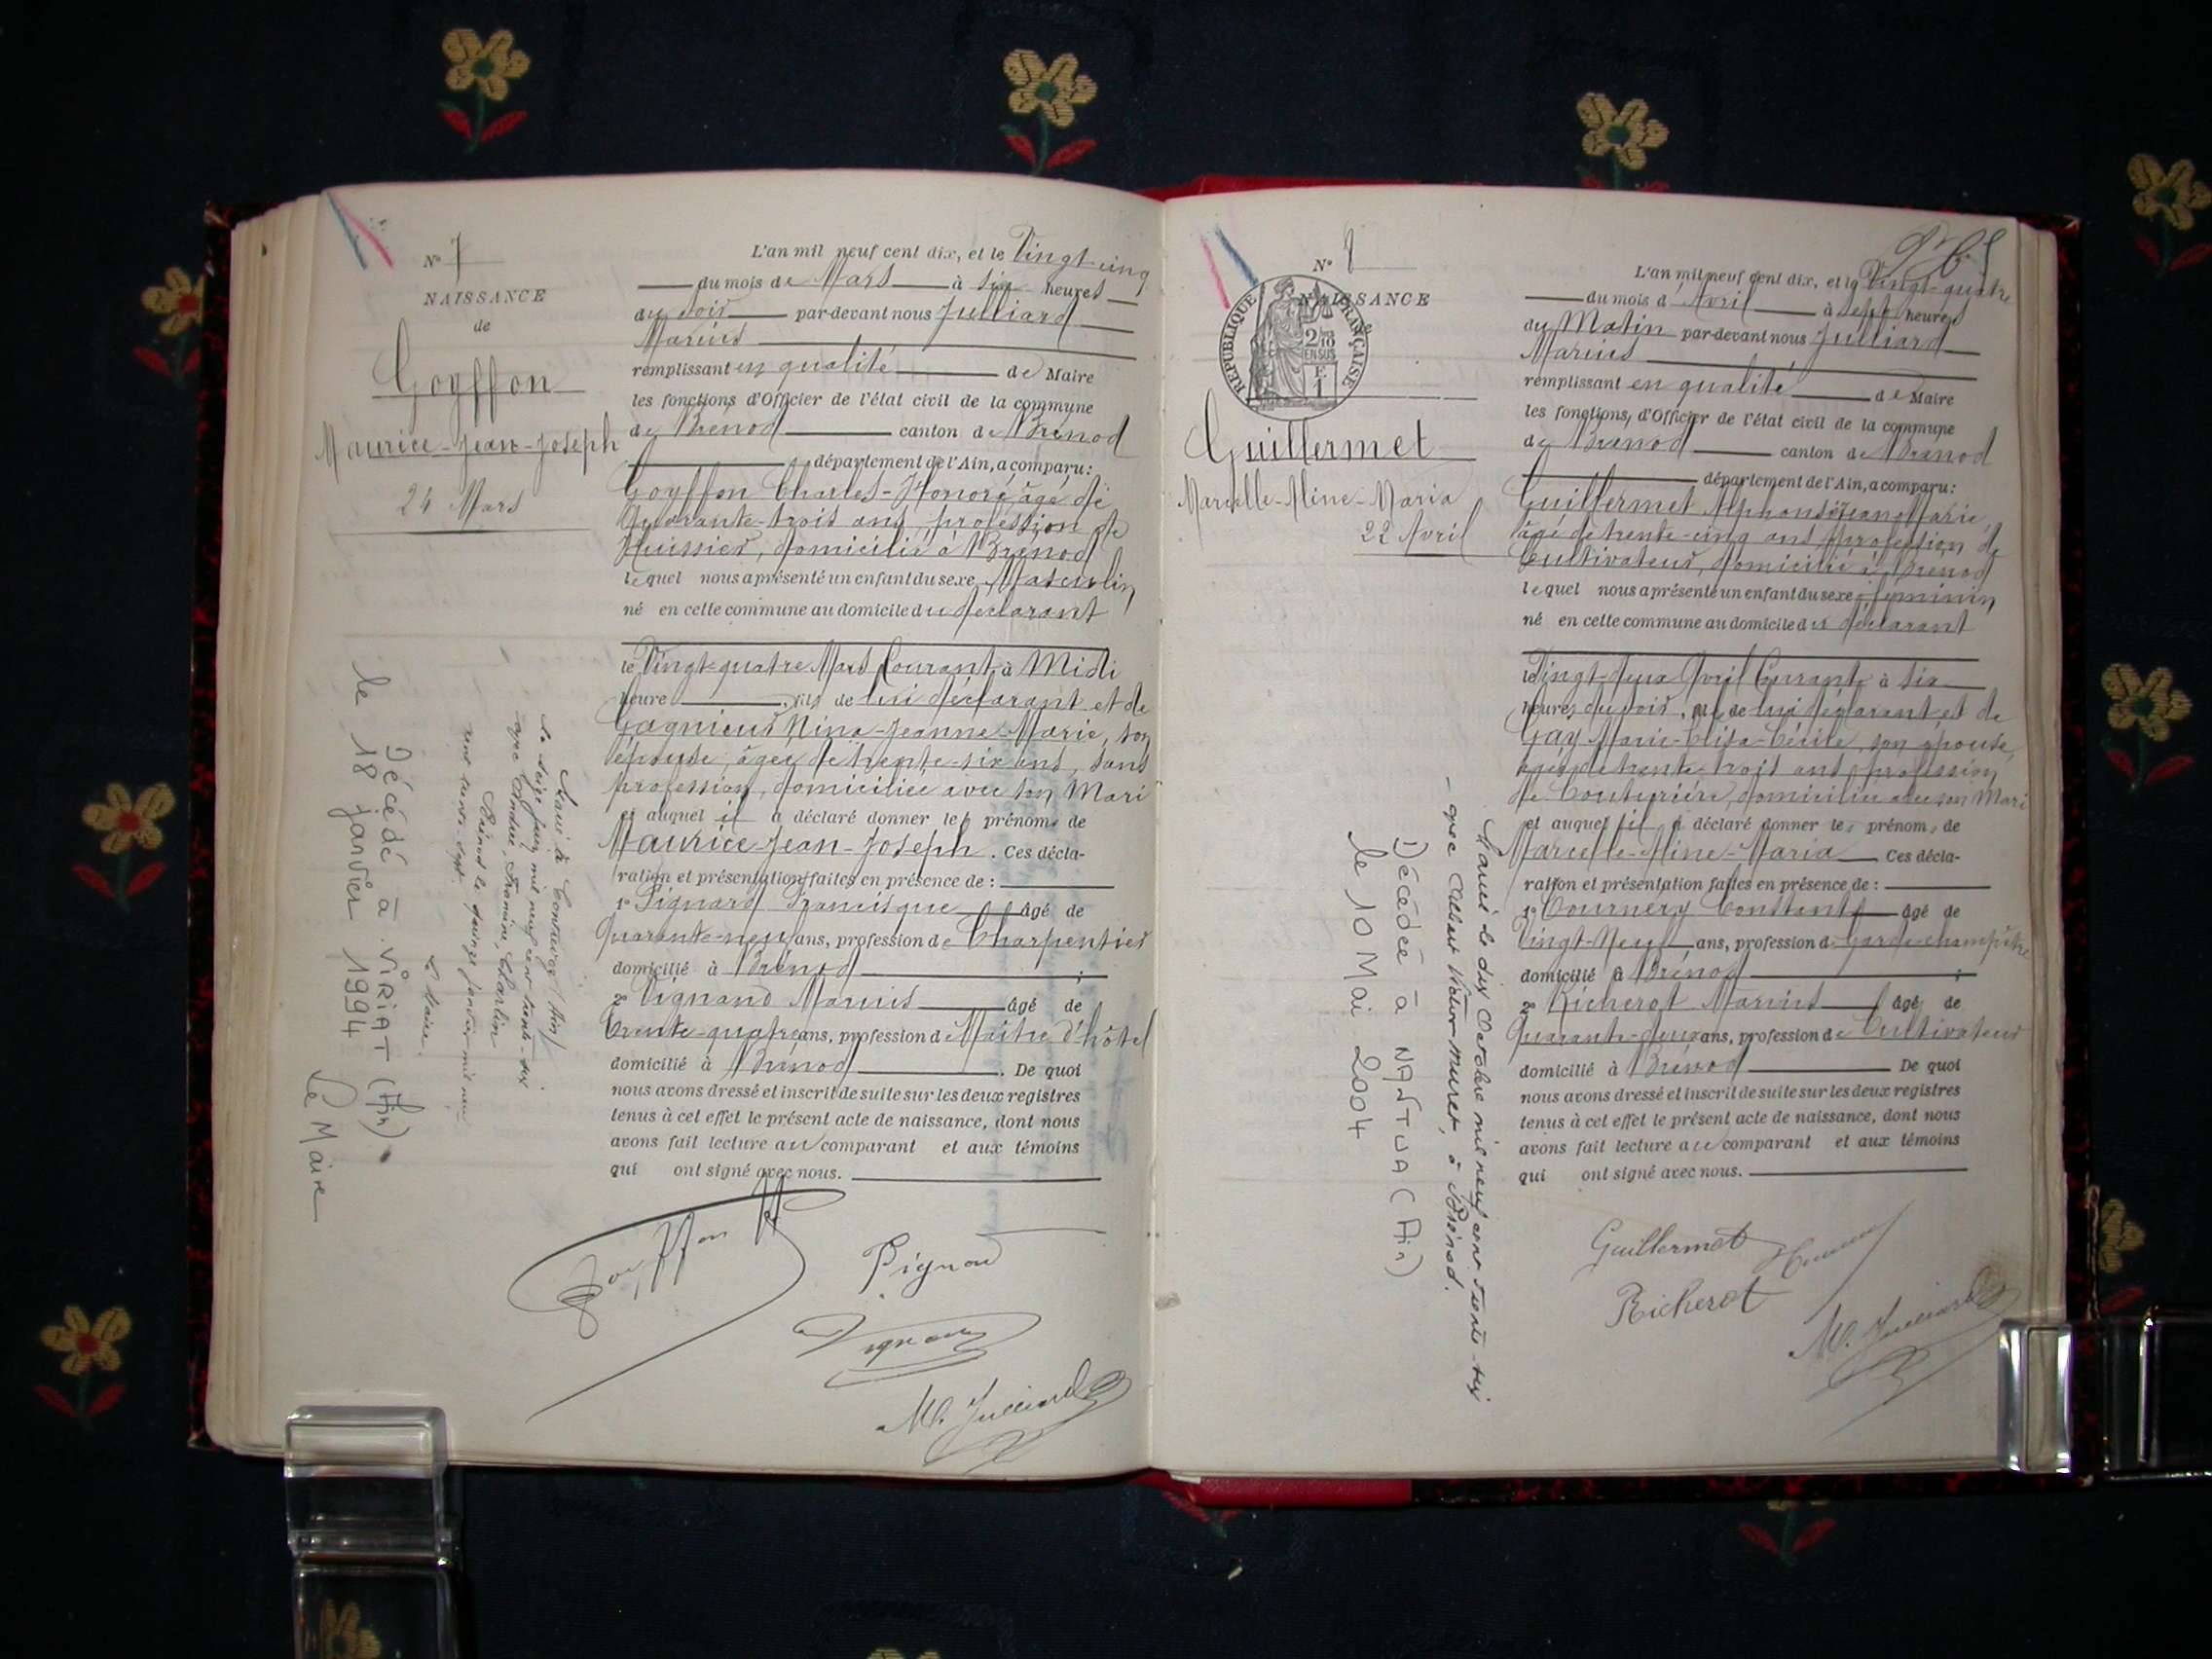 N° 7
NAISSANCE
de
Goyffon
Maurice-Jean-Joseph
24 Mars
L'an mil neuf cent dix, et le Vingt-cinq
du mois de Mars à six heures
du soir par-devant nous Julliard
Marius
remplissant en qualité de Maire
les fonctions d'Officier de l'état civil de la commune
de Brénod canton de Brénod
département de l'Ain, a comparu :
Goyffon Charles-Honoré, âgé de
Quarante-trois ans, profession de
Huissier, domicilié à Brénod
lequel nous a présenté un enfant du sexe Masculin
né en cette commune au domicile du déclarant
le Vingt-quatre Mars Courant à Midi
heure fils de lui déclarant et de
Gagnieux Nina-Jeanne-Marie, son
épouse, âgée de trente-six ans, sans
profession, domiciliée avec son Mari
et auquel il a déclaré donner les prénoms de
Maurice-Jean-Joseph. Ces décla-
ration et présentation faites en présence de :
1° Pignard Francisque âgé de
Quarante-neuf ans, profession de Charpentier
domicilié à Brénod ;
2° Vignand Marius âgé de
Trente-quatre ans, profession de Maître d'hôtel
domicilié à Brénod. De quoi
nous avons dressé et inscrit de suite sur les deux registres
tenus à cet effet le présent acte de naissance, dont nous
avons fait lecture au comparant et aux témoins
qui ont signé avec nous.
Goyffon
Pignard
Vignand
M. Julliard
Marié à
le seize juin mil neuf cent trente-six
avec
Brénod le quinze janvier mil neuf
Le Maire.
Décédé à VIRIAT (Ain)
le 18 janvier 1994
Le Maire
N° 8
NAISSANCE
REPUBLIQUE FRANÇAISE
2/10
EN SUS
Guillermet
Marcelle-Aline-Maria
22 Avril
L'an mil neuf cent dix, et le Vingt-quatre
du mois d'Avril à sept heures
du Matin par-devant nous Julliard
Marius
remplissant en qualité de Maire
les fonctions d'Officier de l'état civil de la commune
de Brénod canton de Brénod
département de l'Ain, a comparu :
Guillermet Alphonse Jean Marie
âgé de trente-cinq ans, profession de
Cultivateur, domicilié à Brénod
lequel nous a présenté un enfant du sexe féminin
né en cette commune au domicile du déclarant
le Vingt-deux Avril Courant à six
heures du soir, fille de lui déclarant et de
Gay Marie-Elisa-Cécile, son épouse,
âgée de trente-trois ans, profession
de Couturière, domiciliée avec son Mari
et auquel il a déclaré donner les prénoms de
Marcelle-Aline-Maria Ces décla-
ration et présentation faites en présence de :
1° Constant âgé de
Vingt-Neuf ans, profession de Garde-champêtre
domicilié à Brénod ;
2° Richerot Marius âgé de
Quarante-deux ans, profession de Cultivateur
domicilié à Brénod De quoi
nous avons dressé et inscrit de suite sur les deux registres
tenus à cet effet le présent acte de naissance, dont nous
avons fait lecture au comparant et aux témoins
qui ont signé avec nous.
Guillermet
Richerot
M. Julliard
Marié le dix Octobre mil neuf cent trente-six
avec Albert Victor Muret, à Brénod.
Décédée à NANTUA (Ain)
le 10 Mai 2004